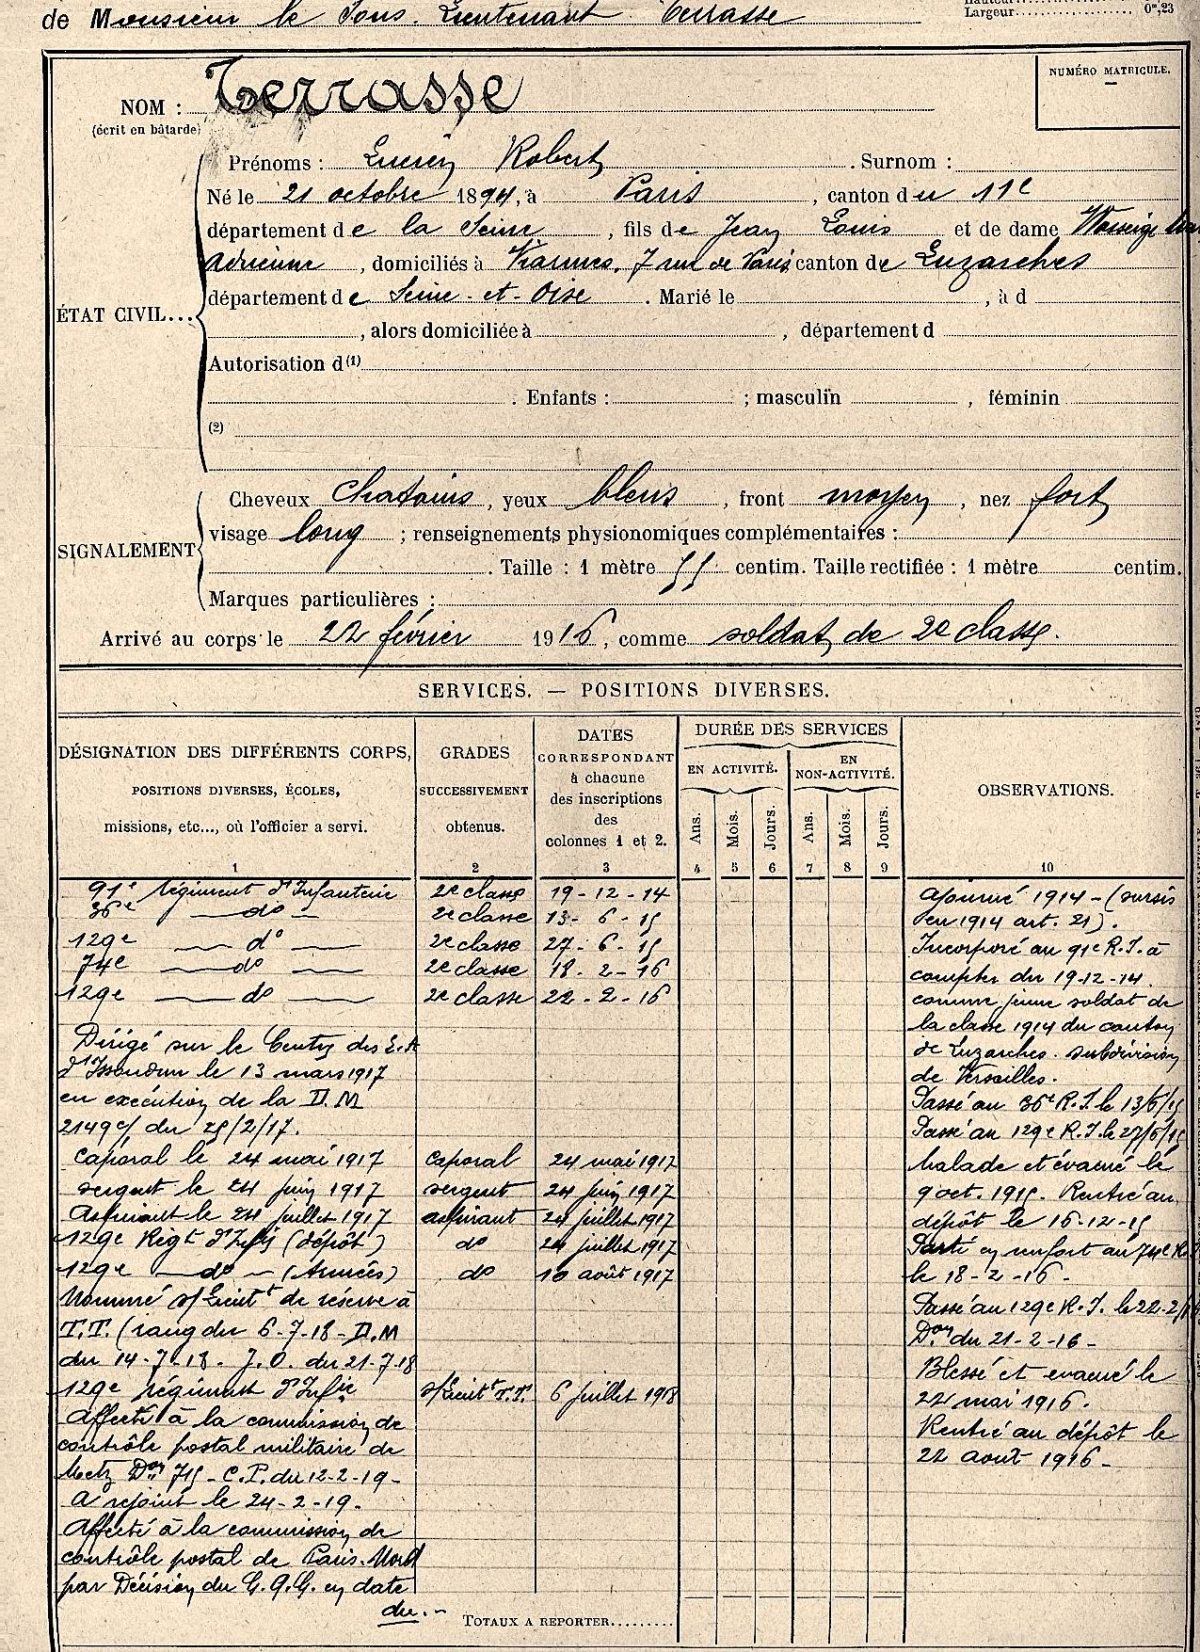 de Monsieur le Sous. Lieutenant Terrasse
Largeur 0m,23
NUMÉRO MATRICULE.
NOM : Terrasse
(écrit en bâtarde)
Prénoms : Lucien Robert . Surnom :
Né le 21 octobre 1894, à Paris , canton du 11e
département de la Seine , fils de Jean Louis et de dame
Adrienne , domiciliés à Viarmes, 7 rue de Paris canton de Luzarches
département de Seine-et-Oise . Marié le , à d
ÉTAT CIVIL...
, alors domiciliée à , département d
Autorisation d(1)
. Enfants : ; masculin , féminin
(2)
Cheveux chatains , yeux bleus , front moyen , nez fort
visage long ; renseignements physionomiques complémentaires :
SIGNALEMENT
. Taille : 1 mètre 55 centim. Taille rectifiée : 1 mètre centim.
Marques particulières :
Arrivé au corps le 22 février 1916, comme soldat de 2e classe.
SERVICES. — POSITIONS DIVERSES.
DÉSIGNATION DES DIFFÉRENTS CORPS,
POSITIONS DIVERSES, ÉCOLES,
missions, etc..., où l'officier a servi.
1
GRADES
SUCCESSIVEMENT
obtenus.
2
DATES
CORRESPONDANT
à chacune
des inscriptions
des
colonnes 1 et 2.
3
DURÉE DES SERVICES
EN ACTIVITÉ.
EN
NON-ACTIVITÉ.
Ans. Mois. Jours. Ans. Mois. Jours.
4 5 6 7 8 9
OBSERVATIONS.
10
91e régiment d'Infanterie 2e classe 19-12-14
36e — do — 2e classe 13-6-15
129e — do — 2e classe 27-6-15
74e — do — 2e classe 18-2-16
129e — do — 2e classe 22-2-16
Dirigé sur le Centre des E.A
d'Issoudun le 13 mars 1917
en exécution de la D.M
2149c/ du 25/2/17.
Caporal le 24 mai 1917 caporal 24 mai 1917
sergent le 24 juin 1917 sergent 24 juin 1917
Aspirant le 24 juillet 1917 aspirant 24 juillet 1917
129e Régt d'Infie (dépôt) do 24 juillet 1917
129e — do — (Armées) do 10 août 1917
Nommé s/Lieutt de réserve à
T.T. (rang du 6-7-18 - D.M
du 14-7-18. J.O. du 21-7-18
129e régiment d'Infie s/Lieutt T.T. 6 juillet 1918
Affecté à la commission de
contrôle postal militaire de
Metz Don 715 - C.P. du 12-2-19-
A rejoint le 24-2-19.
Affecté à la commission de
contrôle postal de Paris-Nord
par Décision du G.Q.G. en date
du.-
Ajourné 1914 - (sursis
en 1914 art. 21).
Incorporé au 91e R.I. à
compter du 19-12-14.
comme jeune soldat de
la classe 1914 du canton
de Luzarches. subdivision
de Versailles.
Passé au 36e R.I. le 13/6/15
Passé au 129e R.I. le 27/6/15
Malade et évacué le
9 oct. 1915. Rentré au
dépôt le 16-12-15
Parti en renfort au 74e R.I
le 18-2-16-
Passé au 129e R.I. le 22-2/16
Don du 21-2-16-
Blessé et évacué le
22 mai 1916.
Rentré au dépôt le
22 août 1916-
TOTAUX A REPORTER